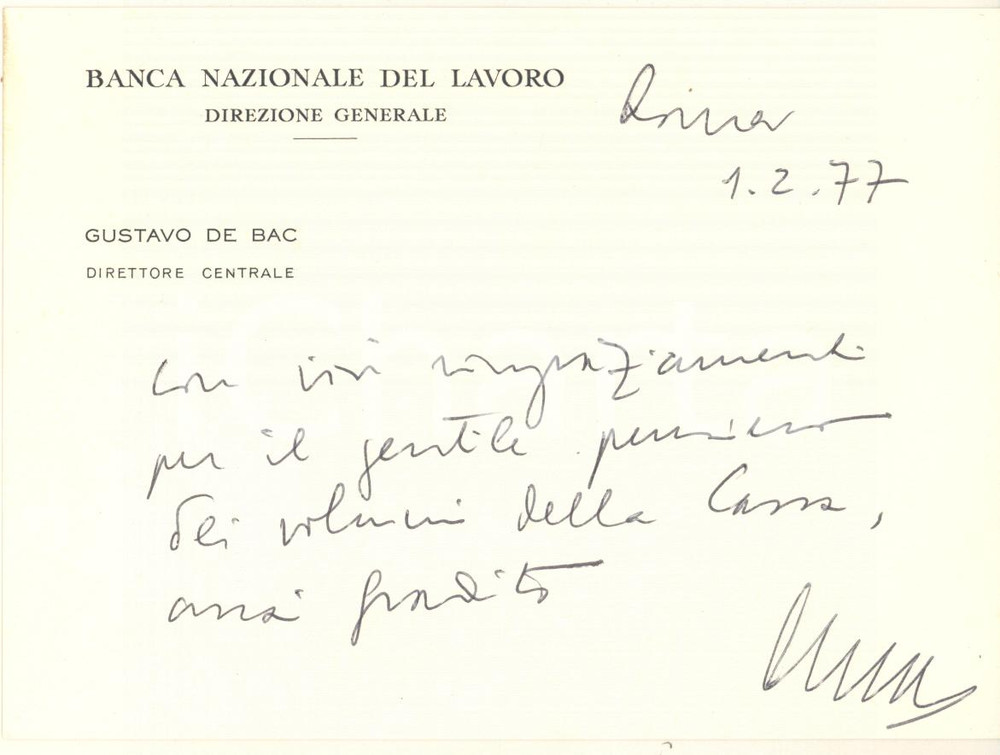 BANCA NAZIONALE DEL LAVORO
DIREZIONE GENERALE
Roma
1.2.77
GUSTAVO DE BAC
DIRETTORE CENTRALE
con vivi ringraziamenti
per il gentile pensiero
dei volumi della Cassa,
assai gradito